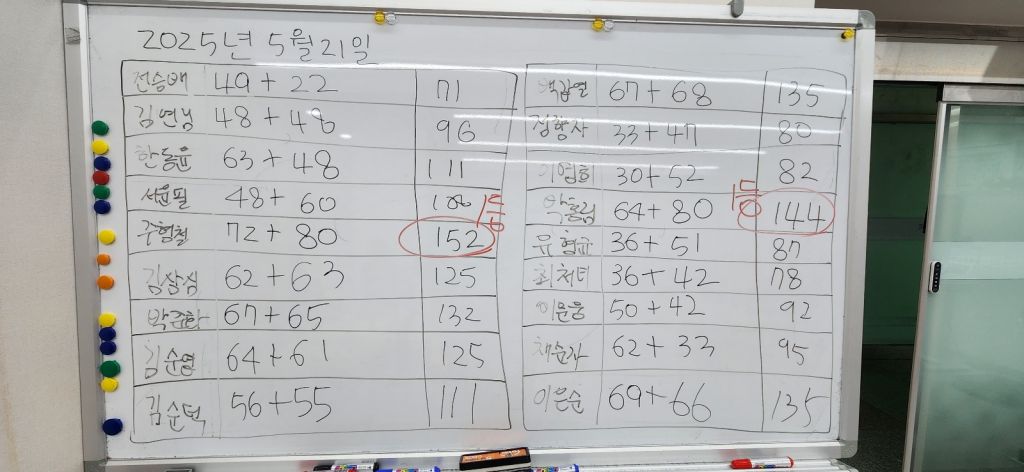 2025년 5월21일
전승배 49+22 71
김연남 48+48 96
한동윤 63+48 111
서윤필 48+60 108
주형철 72+80 152
김삼심 62+63 125
67+65 132
김순영 64+61 125
김순덕 56+55 111
67+68 135
33+47 80
30+52 82
64+80 144
36+51 87
36+42 78
이운웅 50+42 92
채순자 62+33 95
이은순 69+66 135